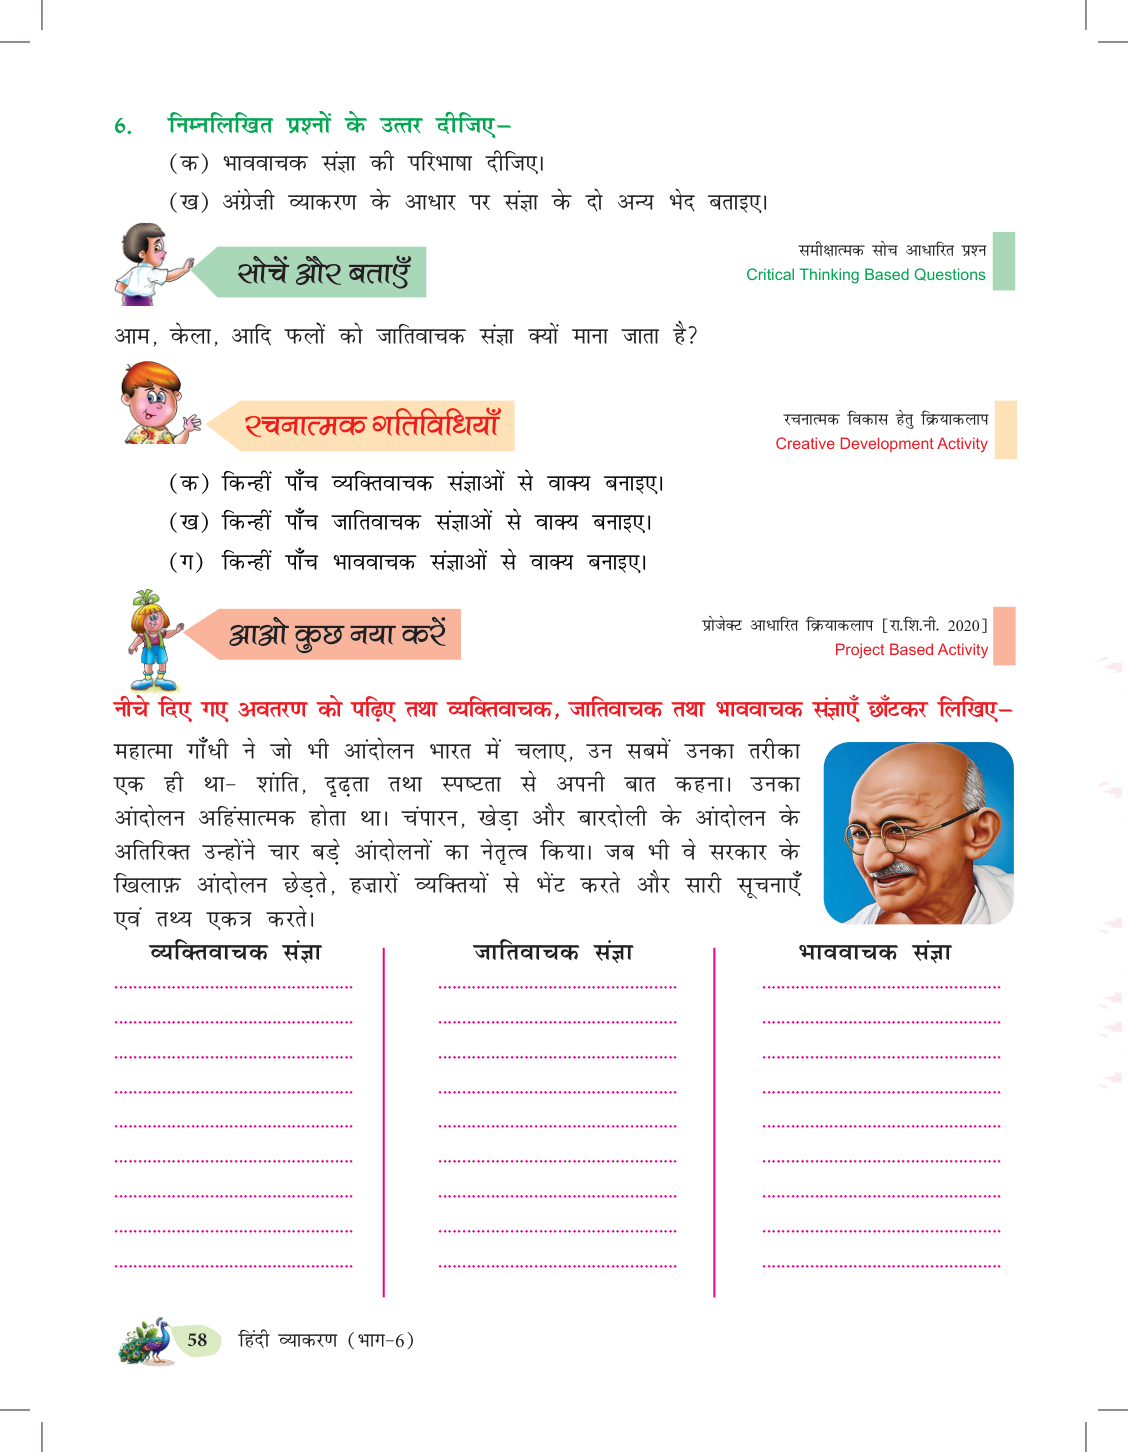 6. निम्नलिखित प्रश्नों के उत्तर दीजिए–
(क) भाववाचक संज्ञा की परिभाषा दीजिए।
(ख) अंग्रेज़ी व्याकरण के आधार पर संज्ञा के दो अन्य भेद बताइए।
सोचें और बताएँ
समीक्षात्मक सोच आधारित प्रश्न
Critical Thinking Based Questions
आम, केला, आदि फलों को जातिवाचक संज्ञा क्यों माना जाता है?
रचनात्मक गतिविधियाँ
रचनात्मक विकास हेतु क्रियाकलाप
Creative Development Activity
(क) किन्हीं पाँच व्यक्तिवाचक संज्ञाओं से वाक्य बनाइए।
(ख) किन्हीं पाँच जातिवाचक संज्ञाओं से वाक्य बनाइए।
(ग) किन्हीं पाँच भाववाचक संज्ञाओं से वाक्य बनाइए।
आओ कुछ नया करें
प्रोजेक्ट आधारित क्रियाकलाप [रा.शि.नी. 2020]
Project Based Activity
नीचे दिए गए अवतरण को पढ़िए तथा व्यक्तिवाचक, जातिवाचक तथा भाववाचक संज्ञाएँ छाँटकर लिखिए–
महात्मा गाँधी ने जो भी आंदोलन भारत में चलाए, उन सबमें उनका तरीका
एक ही था– शांति, दृढ़ता तथा स्पष्टता से अपनी बात कहना। उनका
आंदोलन अहिंसात्मक होता था। चंपारन, खेड़ा और बारदोली के आंदोलन के
अतिरिक्त उन्होंने चार बड़े आंदोलनों का नेतृत्व किया। जब भी वे सरकार के
खिलाफ़ आंदोलन छेड़ते, हज़ारों व्यक्तियों से भेंट करते और सारी सूचनाएँ
एवं तथ्य एकत्र करते।
व्यक्तिवाचक संज्ञा जातिवाचक संज्ञा भाववाचक संज्ञा
58 हिंदी व्याकरण (भाग-6)